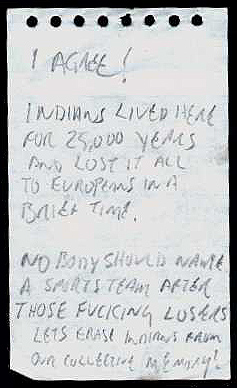 I AGREE!
INDIANS LIVED HERE
FOR 25,000 YEARS
AND LOST IT ALL
TO EUROPEANS IN A
BRIEF TIME.
NO BODY SHOULD NAME
A SPORTS TEAM AFTER
THOSE FUCKING LOSERS
LETS ERASE INDIANS FROM
OUR COLLECTIVE MEMORY!